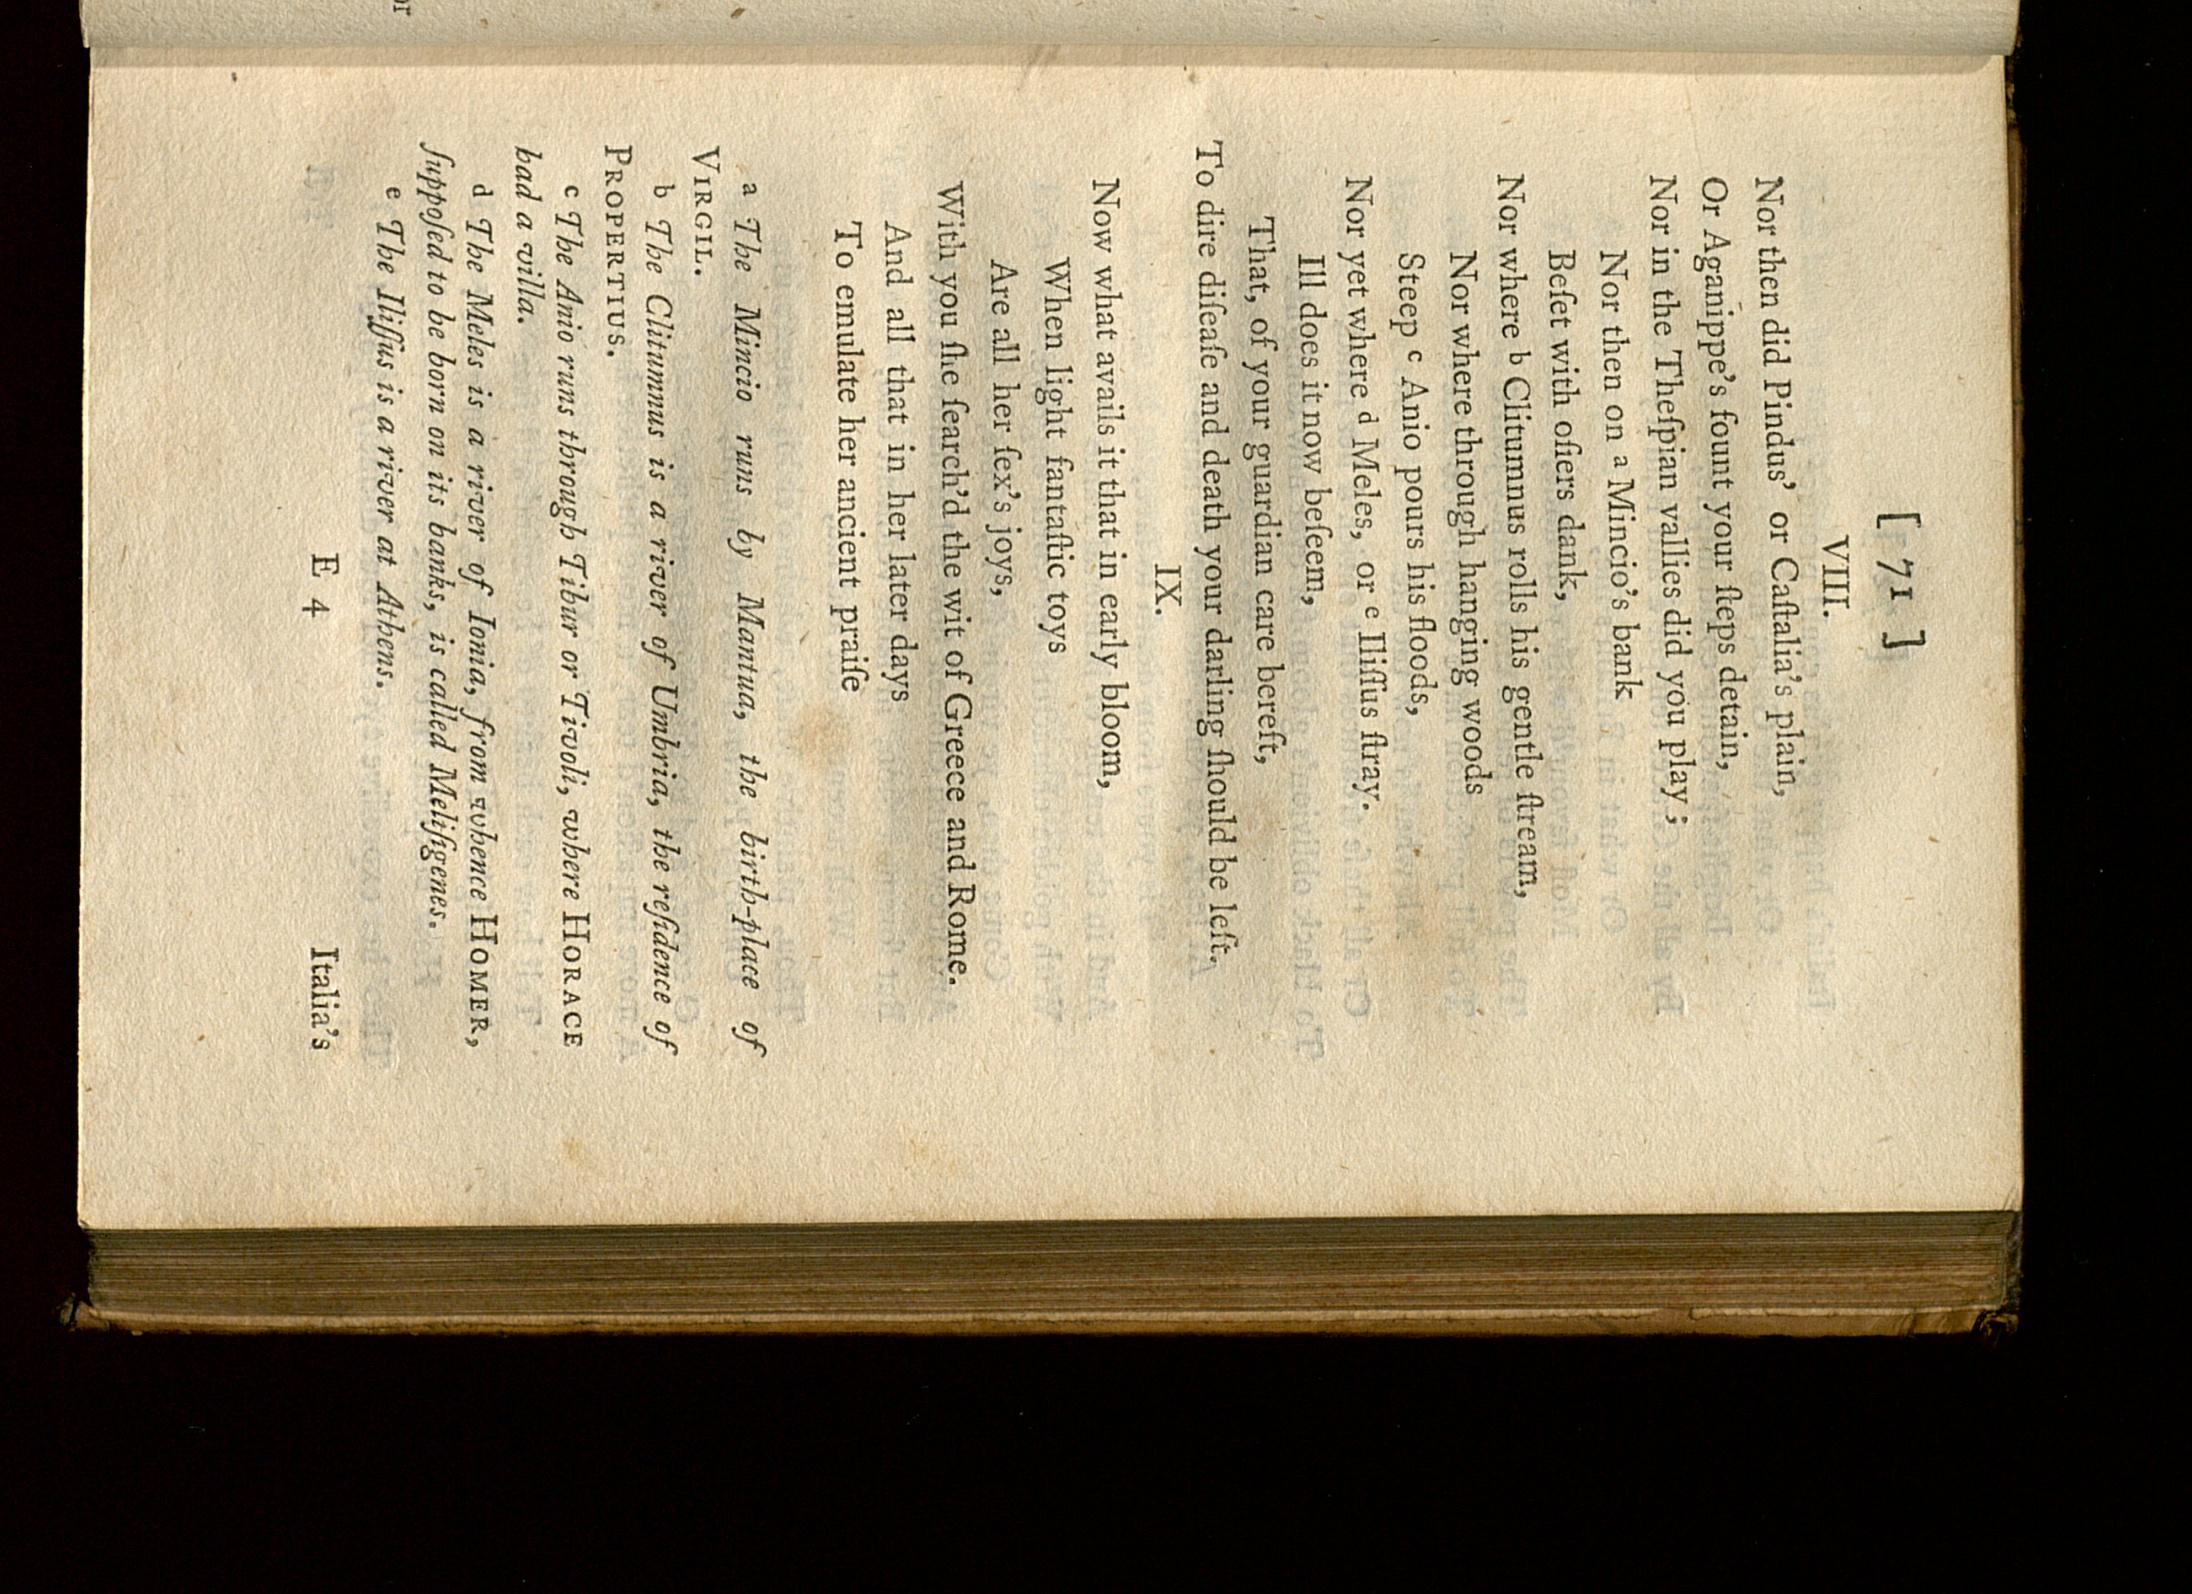 [ 71 ]
VIII.
Nor then did Pindus' or Caſtalia's plain,
Or Aganippe's fount your ſteps detain,
Nor in the Theſpian vallies did you play;
Nor then on a Mincio's bank
Beſet with oſiers dank,
Nor where b Clitumnus rolls his gentle ſtream,
Nor where through hanging woods
Steep c Anio pours his floods,
Nor yet where d Meles, or e Iliſſus ſtray.
Ill does it now beſeem,
That, of your guardian care bereft,
To dire diſeaſe and death your darling ſhould be left.
IX.
Now what avails it that in early bloom,
When light fantaſtic toys
Are all her ſex's joys,
With you ſhe ſearch'd the wit of Greece and Rome.
And all that in her later days
To emulate her ancient praiſe
a The Mincio runs by Mantua, the birth-place of
VIRGIL.
b The Clitumnus is a river of Umbria, the reſidence of
PROPERTIUS.
c The Anio runs through Tibur or Tivoli, where HORACE
had a villa.
d The Meles is a river of Ionia, from whence HOMER,
ſuppoſed to be born on its banks, is called Meliſigenes.
e The Iliſſus is a river at Athens.
E 4 Italia's